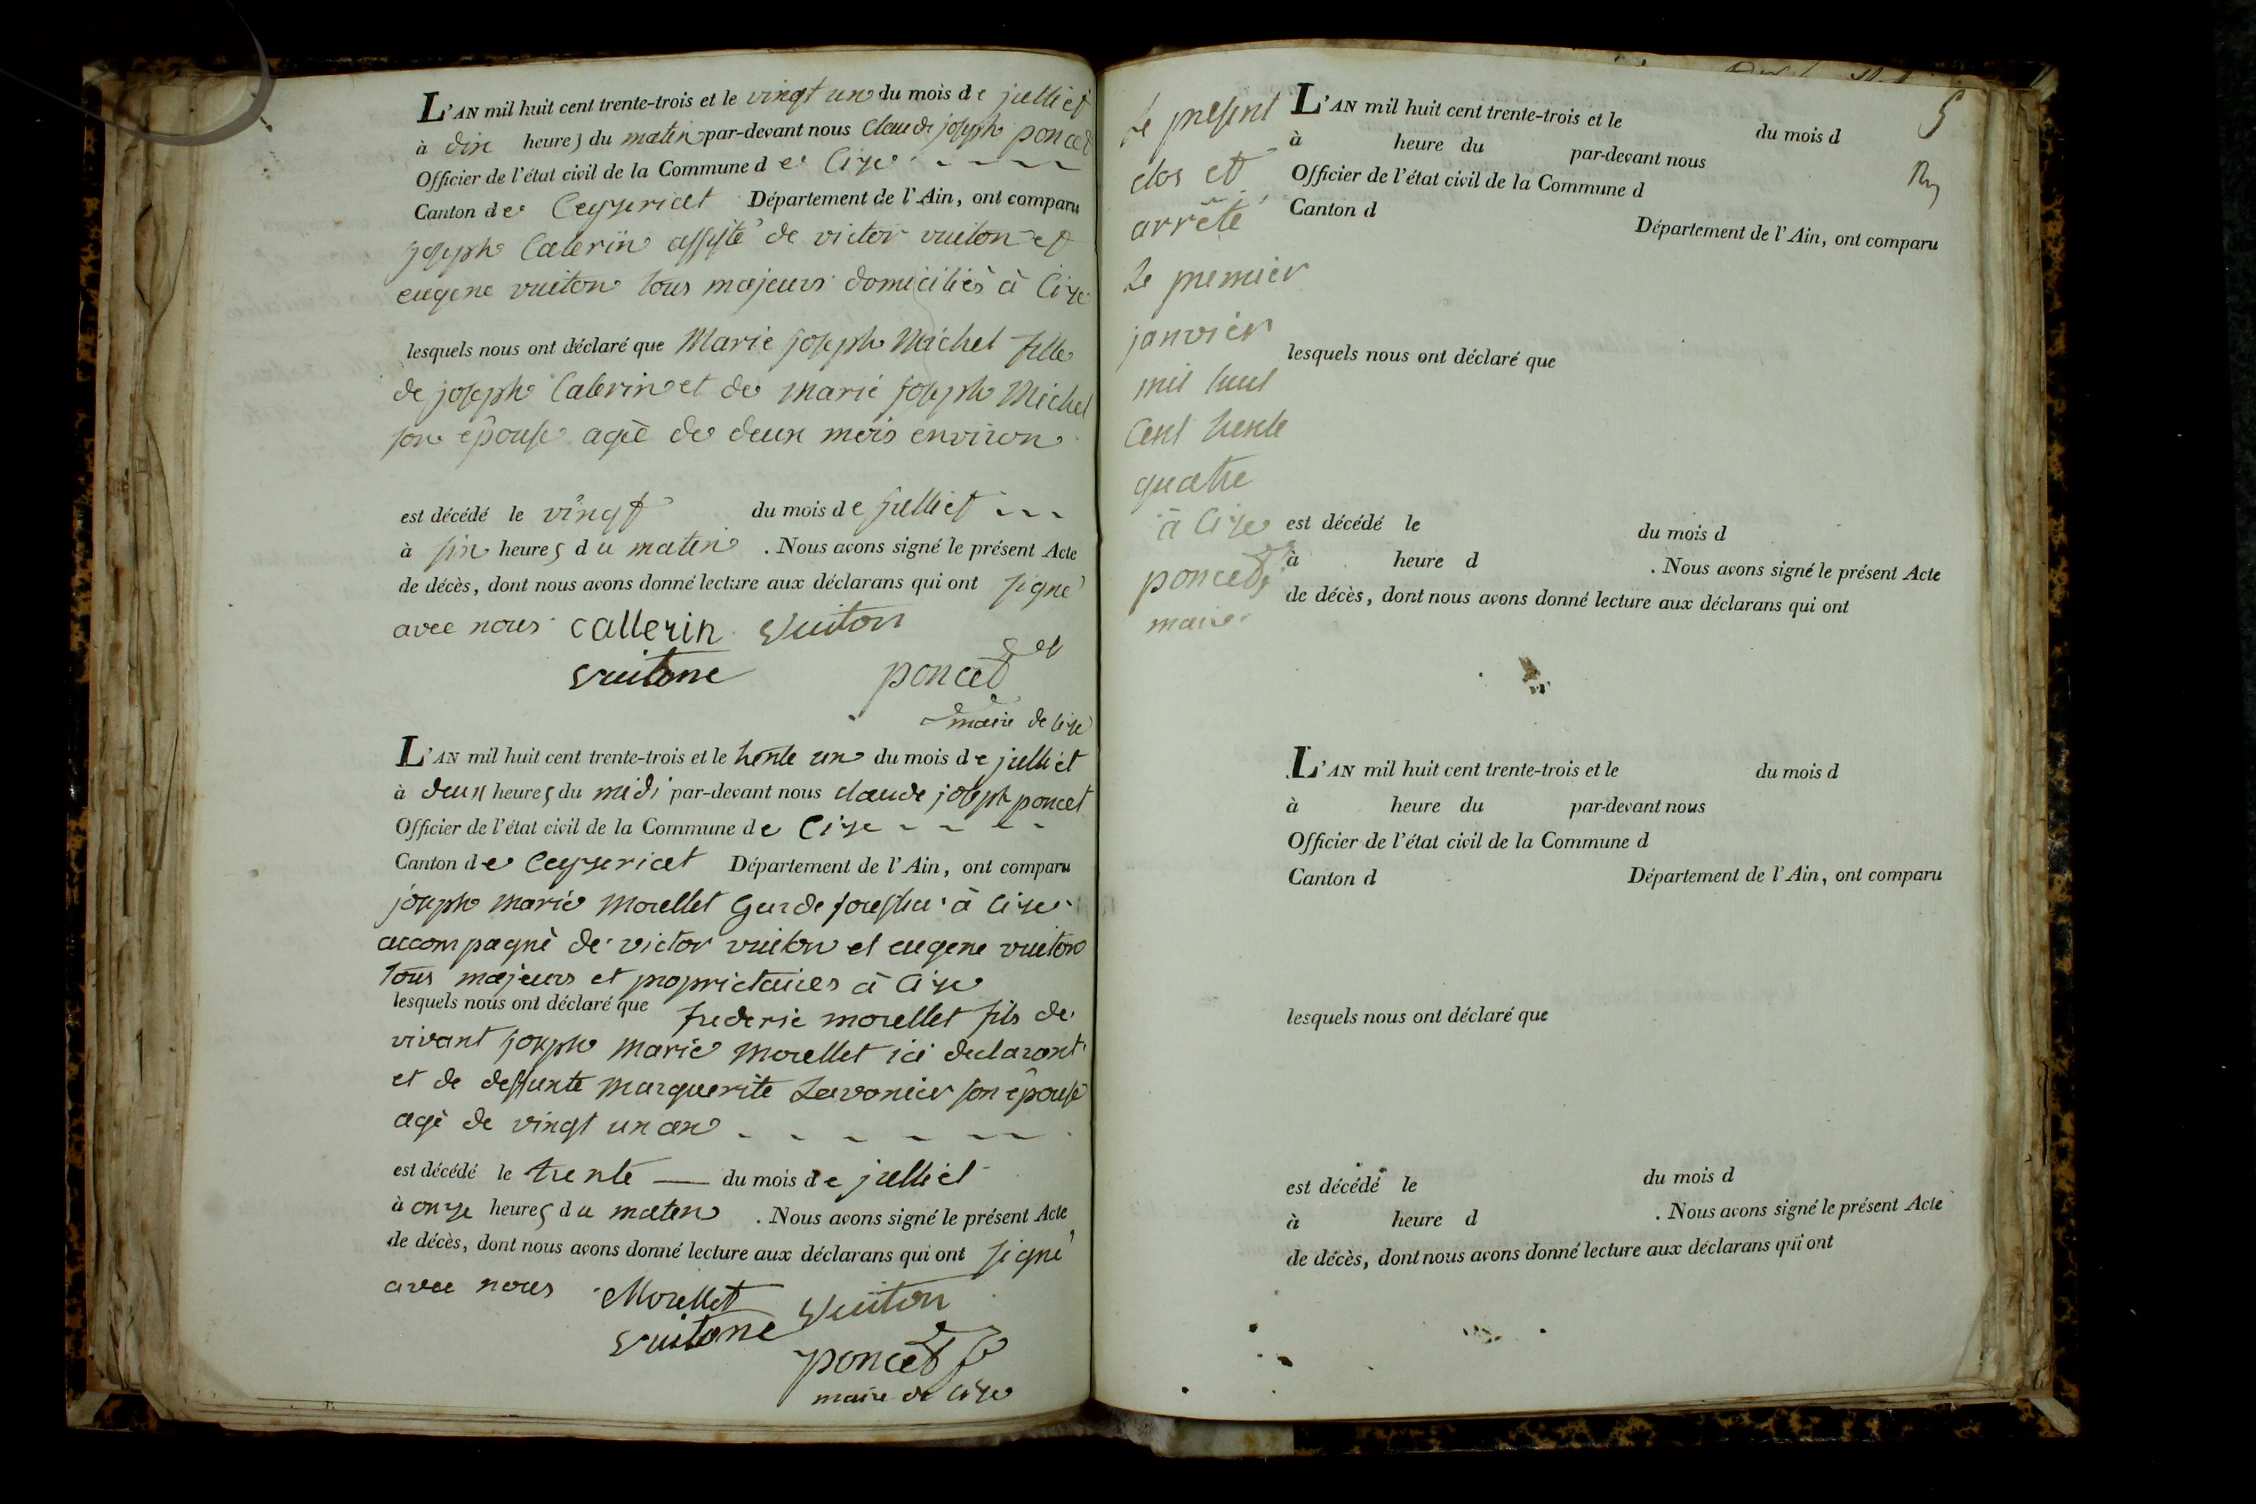 L'AN mil huit cent trente-trois et le vingt un du mois de julliet
à dix heures du matin par-devant nous Claude joseph poncet
Officier de l'état civil de la Commune de Cize
Canton de Ceyzeriat Département de l'Ain, ont comparu
joseph Calerin assisté de victor vuiton et
eugene vuiton tous majeurs domiciliés à Cize
lesquels nous ont déclaré que Marie joseph Michel fille
de joseph Calerin et de marie joseph Michel
son épouse agée de deux mois environ
est décédé le vingt du mois de julliet
à six heures du matin . Nous avons signé le présent Acte
de décès, dont nous avons donné lecture aux déclarans qui ont signé
avec nous callerin vuiton
vuitone poncet
maire de Cize
L'AN mil huit cent trente-trois et le trente un du mois de julliet
à deux heures du midi par-devant nous claude joseph poncet
Officier de l'état civil de la Commune de Cize
Canton de Ceyzeriat Département de l'Ain, ont comparu
joseph marie morellet Garde forestier à Cize
accompagné de victor vuiton et eugene vuiton
tous majeurs et proprietaires à Cize
lesquels nous ont déclaré que frederic morellet fils de
vivant joseph marie morellet ici declarant
et de deffunte marguerite Lavonier son épouse
agé de vingt un an
est décédé le trente du mois de julliet
à onze heures du maten . Nous avons signé le présent Acte
de décès, dont nous avons donné lecture aux déclarans qui ont signé
avec nous Morellet vuiton
vuitone
poncet
maire de Cize
Le present
clos et
arrêté
Le premier
janvier
mil huit
Cent trente
quatre
à Cize
poncet
maire
5
L'AN mil huit cent trente-trois et le du mois d
à heure du par-devant nous
Officier de l'état civil de la Commune d
Canton d Département de l'Ain, ont comparu
lesquels nous ont déclaré que
est décédé le du mois d
à heure d . Nous avons signé le présent Acte
de décès, dont nous avons donné lecture aux déclarans qui ont
L'AN mil huit cent trente-trois et le du mois d
à heure du par-devant nous
Officier de l'état civil de la Commune d
Canton d Département de l'Ain, ont comparu
lesquels nous ont déclaré que
est décédé le du mois d
à heure d . Nous avons signé le présent Acte
de décès, dont nous avons donné lecture aux déclarans qui ont